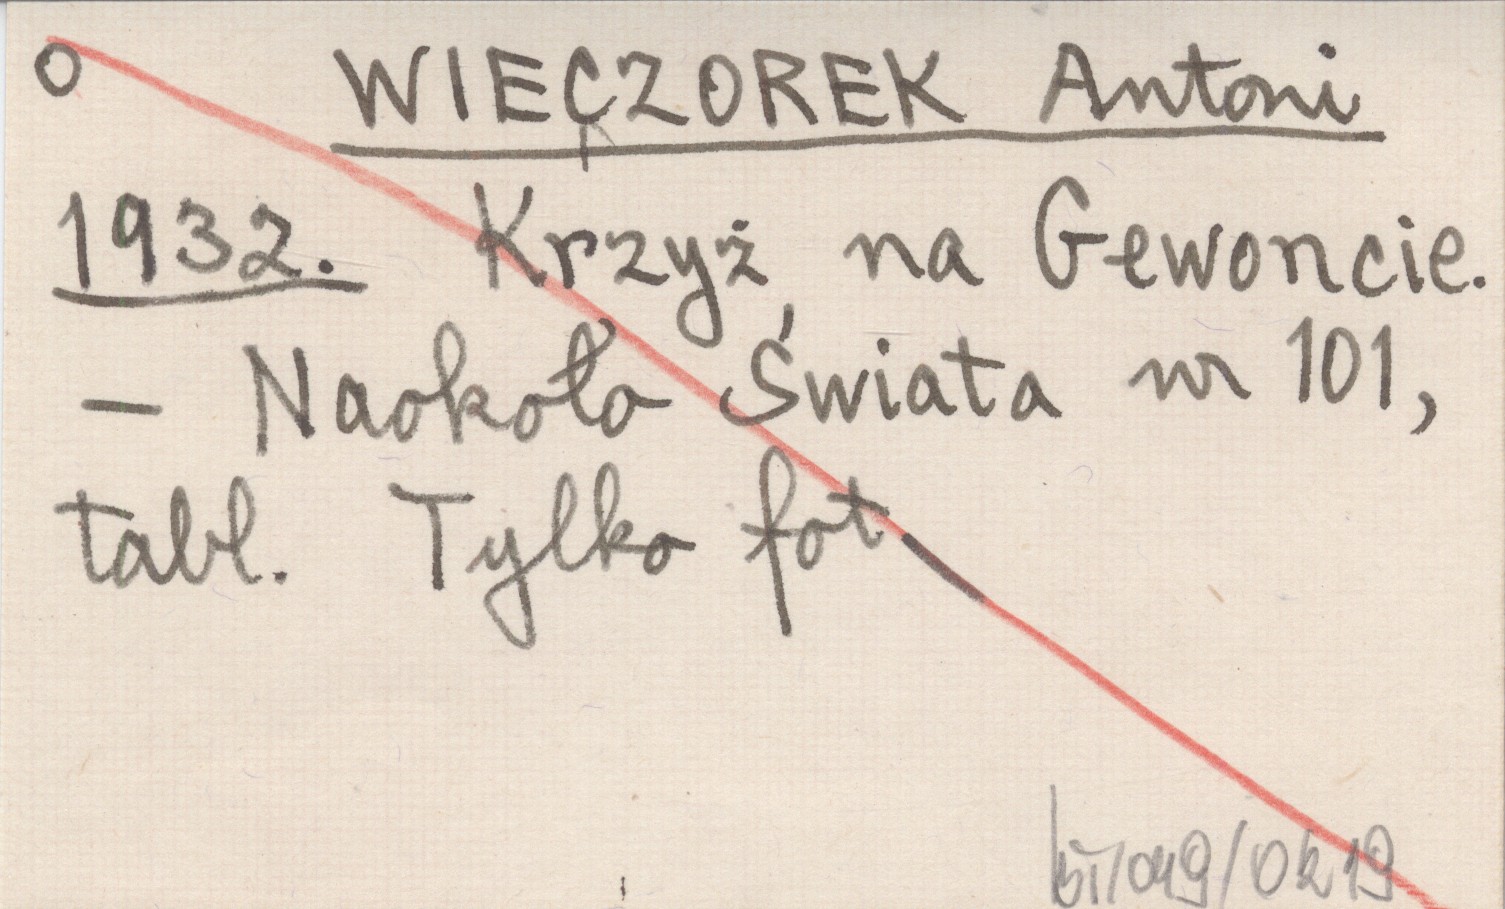 O WIECZOREK Antoni
1932. Krzyż na Gewoncie.
— Naokoło Świata nr 101,
tabl. Tylko fot